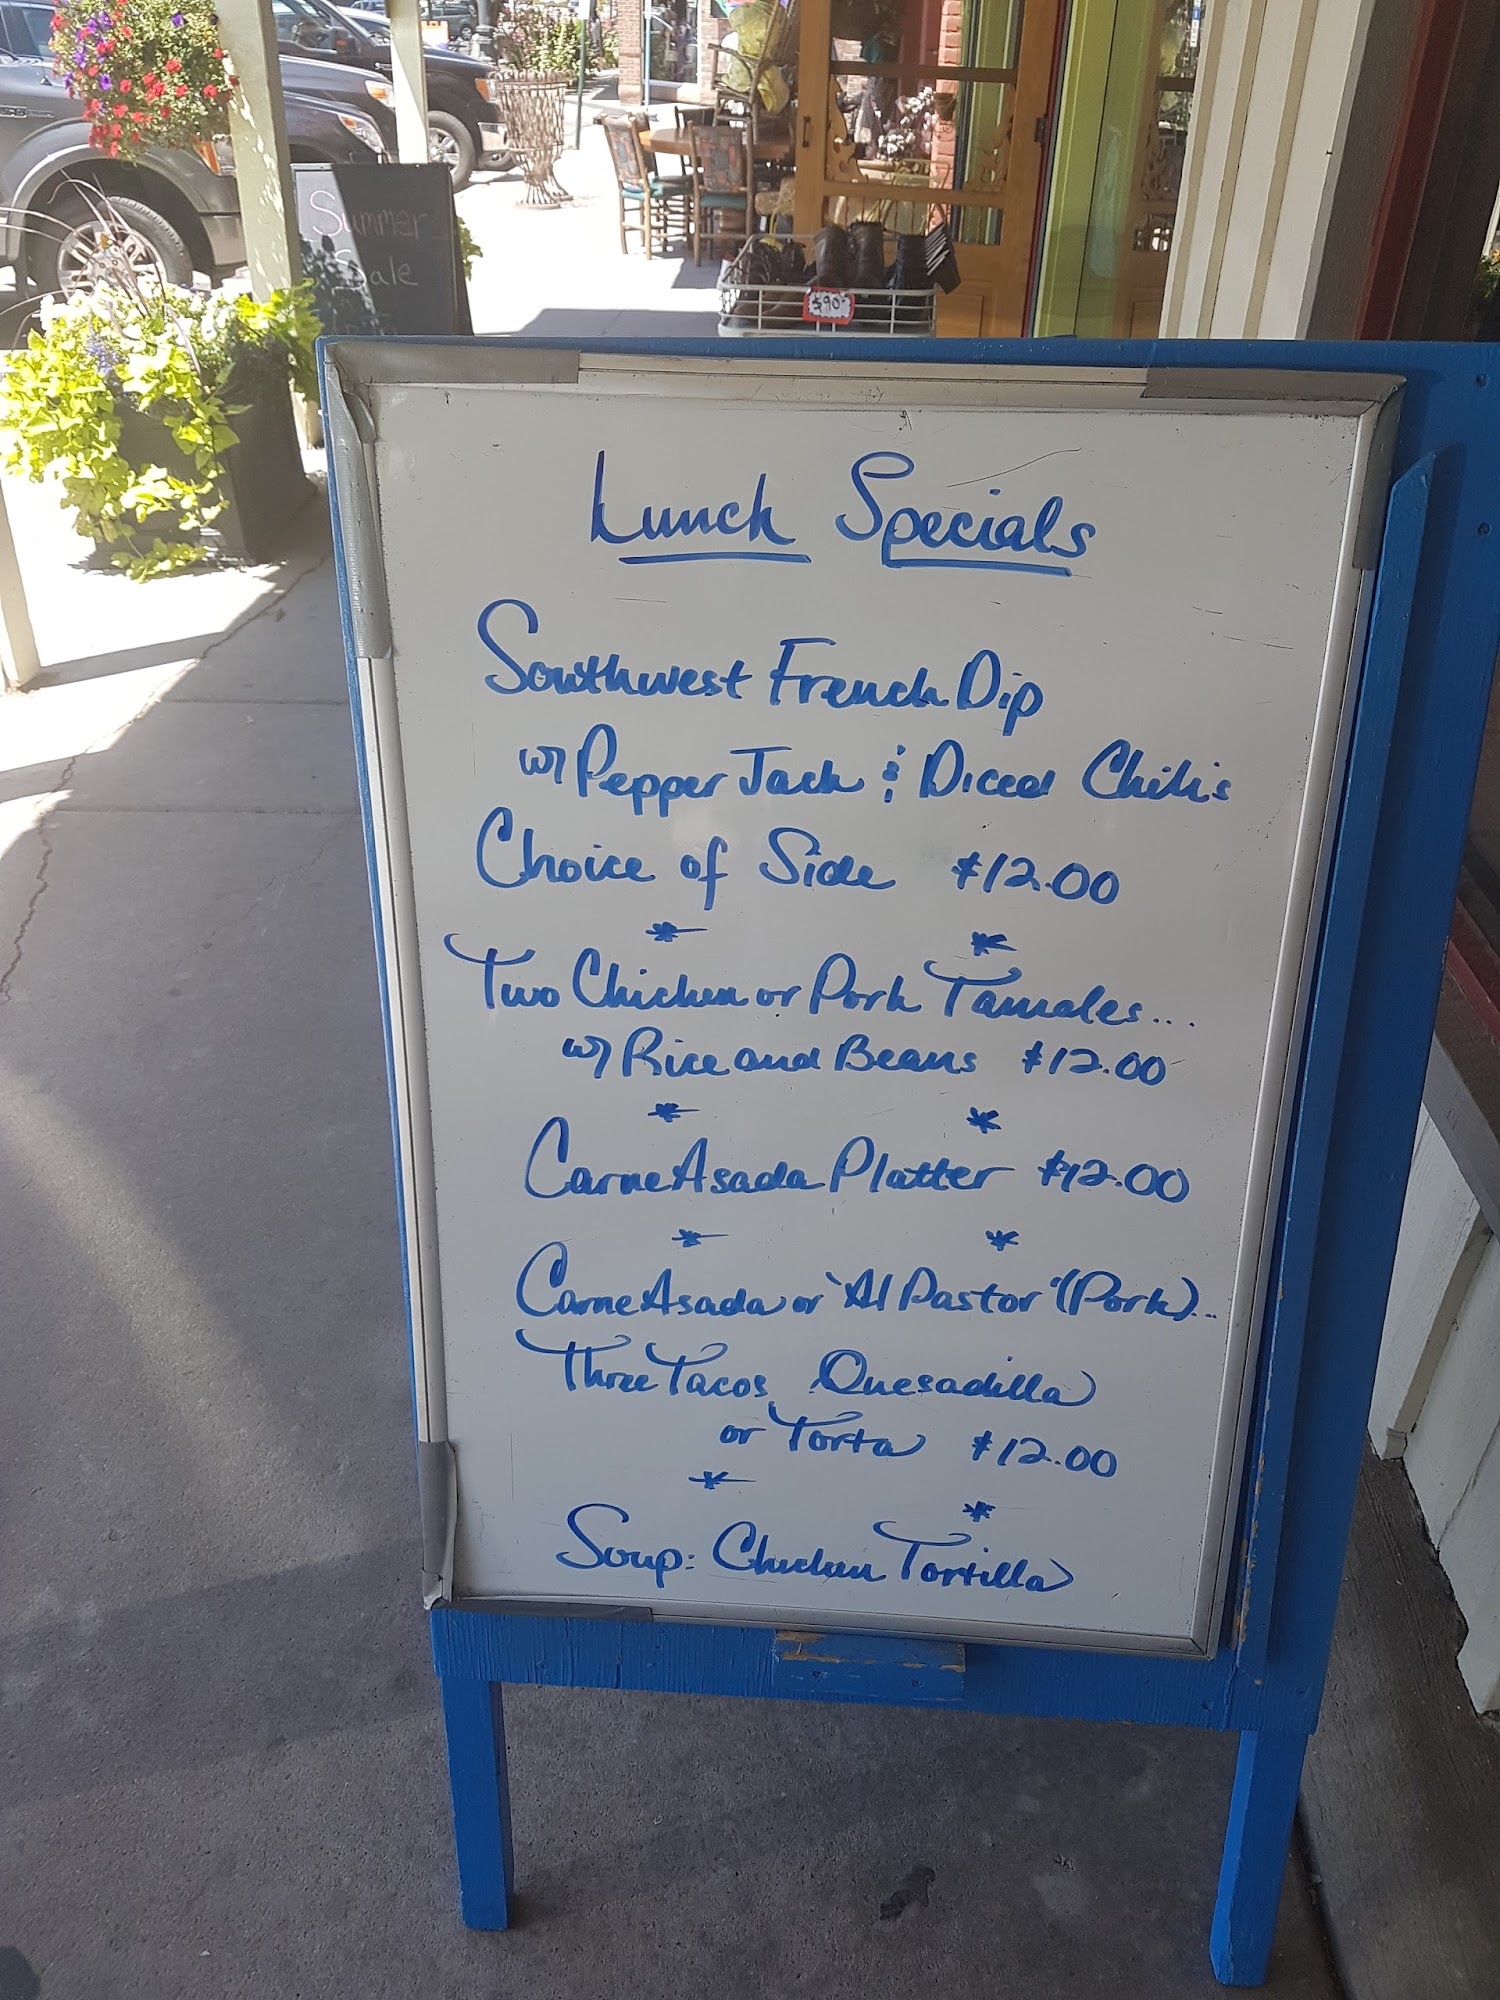 Summer
Sale
$90-
Lunch Specials
Southwest French Dip
w/ Pepper Jack & Diced Chili's
Choice of Side $12.00
* *
Two Chicken or Pork Tamales...
w/ Rice and Beans $12.00
* *
Carne Asada Platter $12.00
* *
Carne Asada or "Al Pastor" (Pork)...
Three Tacos, Quesadilla
or Torta $12.00
* *
Soup: Chicken Tortilla